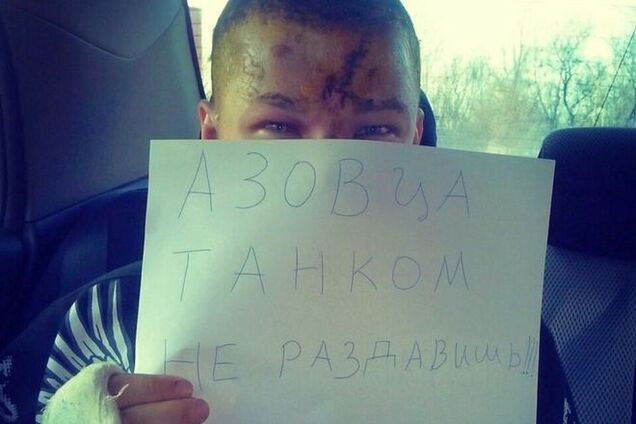 АЗОВЦА
ТАНКОМ
НЕ РАЗДАВИШЬ!!!